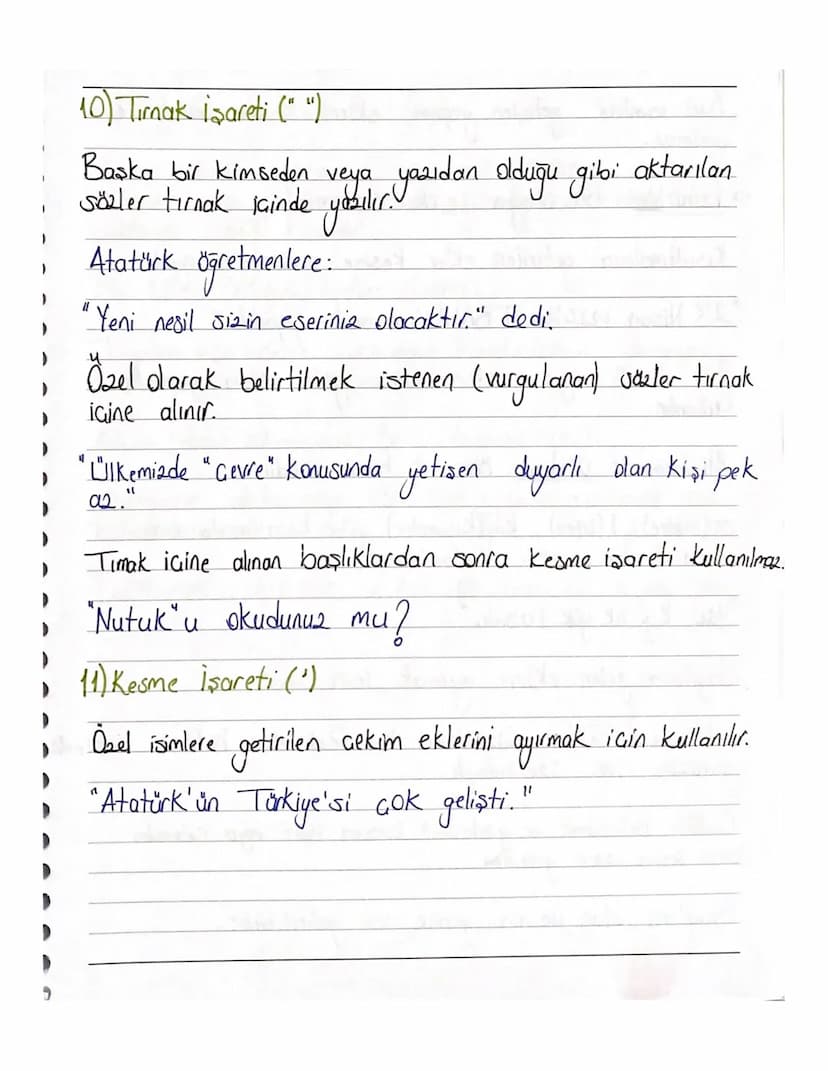 10) Tırnak işareti (" ")
Başka bir kimseden veya yazıdan olduğu gibi aktarılan
sözler tırnak içinde yazılır.
Atatürk öğretmenlere:
"Yeni nesil sizin eseriniz olacaktır." dedi.
Özel olarak belirtilmek istenen (vurgulanan) sözler tırnak
içine alınır.
"Ülkemizde "çevre" konusunda yetişen duyarlı olan kişi pek
az."
Tırnak içine alınan başlıklardan sonra kesme işareti kullanılmaz.
"Nutuk"u okudunuz mu?
11) Kesme İşareti (')
Özel isimlere getirilen çekim eklerini ayırmak için kullanılır.
"Atatürk'ün Türkiye'si çok gelişti."